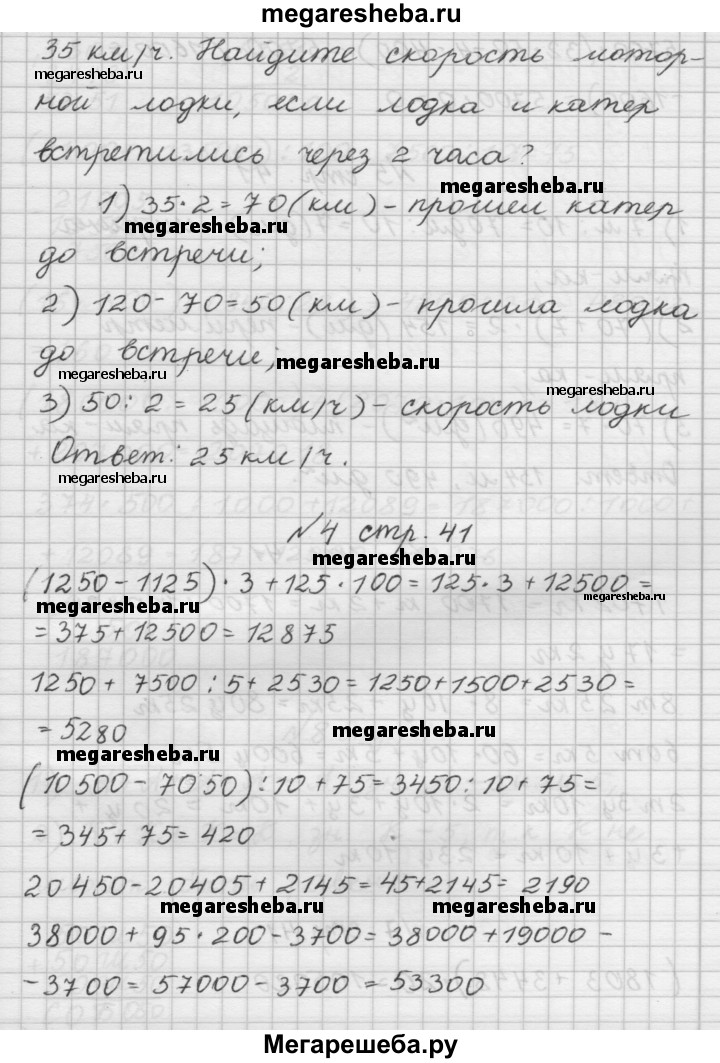 megaresheba.ru
35 км/ч. Найдите скорость мотор-
megaresheba.ru
ной лодки, если лодка и катер
megaresheba.ru
встретились через 2 часа?
megaresheba.ru
1) 35·2=70(км)-прошел катер
megaresheba.ru
до встречи;
2) 120-70=50(км)-прошла лодка
до встречи;
megaresheba.ru
megaresheba.ru
megaresheba.ru
3) 50:2=25(км/ч)-скорость лодки
Ответ: 25 км/ч.
megaresheba.ru
№4 стр. 41
megaresheba.ru
(1250-1125)·3+125·100=125·3+12500=
megaresheba.ru
megaresheba.ru
=375+12500=12875
1250+7500:5+2530=1250+1500+2530=
=5280
megaresheba.ru
megaresheba.ru
(10500-7050):10+75=3450:10+75=
=345+75=420
20450-20405+2145=45+2145=2190
megaresheba.ru
megaresheba.ru
38000+95·200-3700=38000+19000-
-3700=57000-3700=53300
Мегарешеба.ру